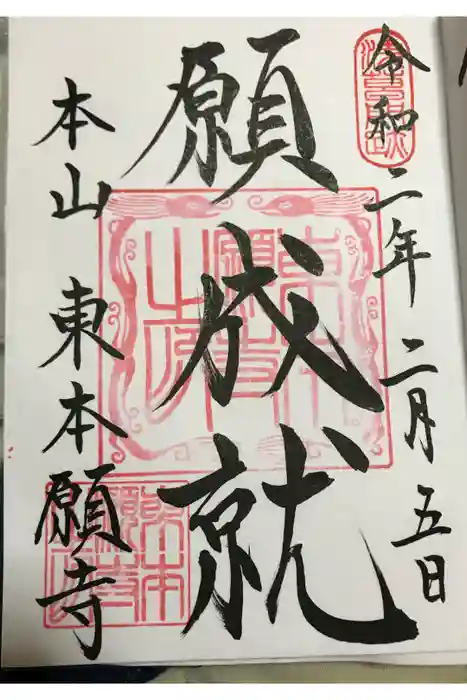 令和二年二月五日
願成就
本山 東本願寺